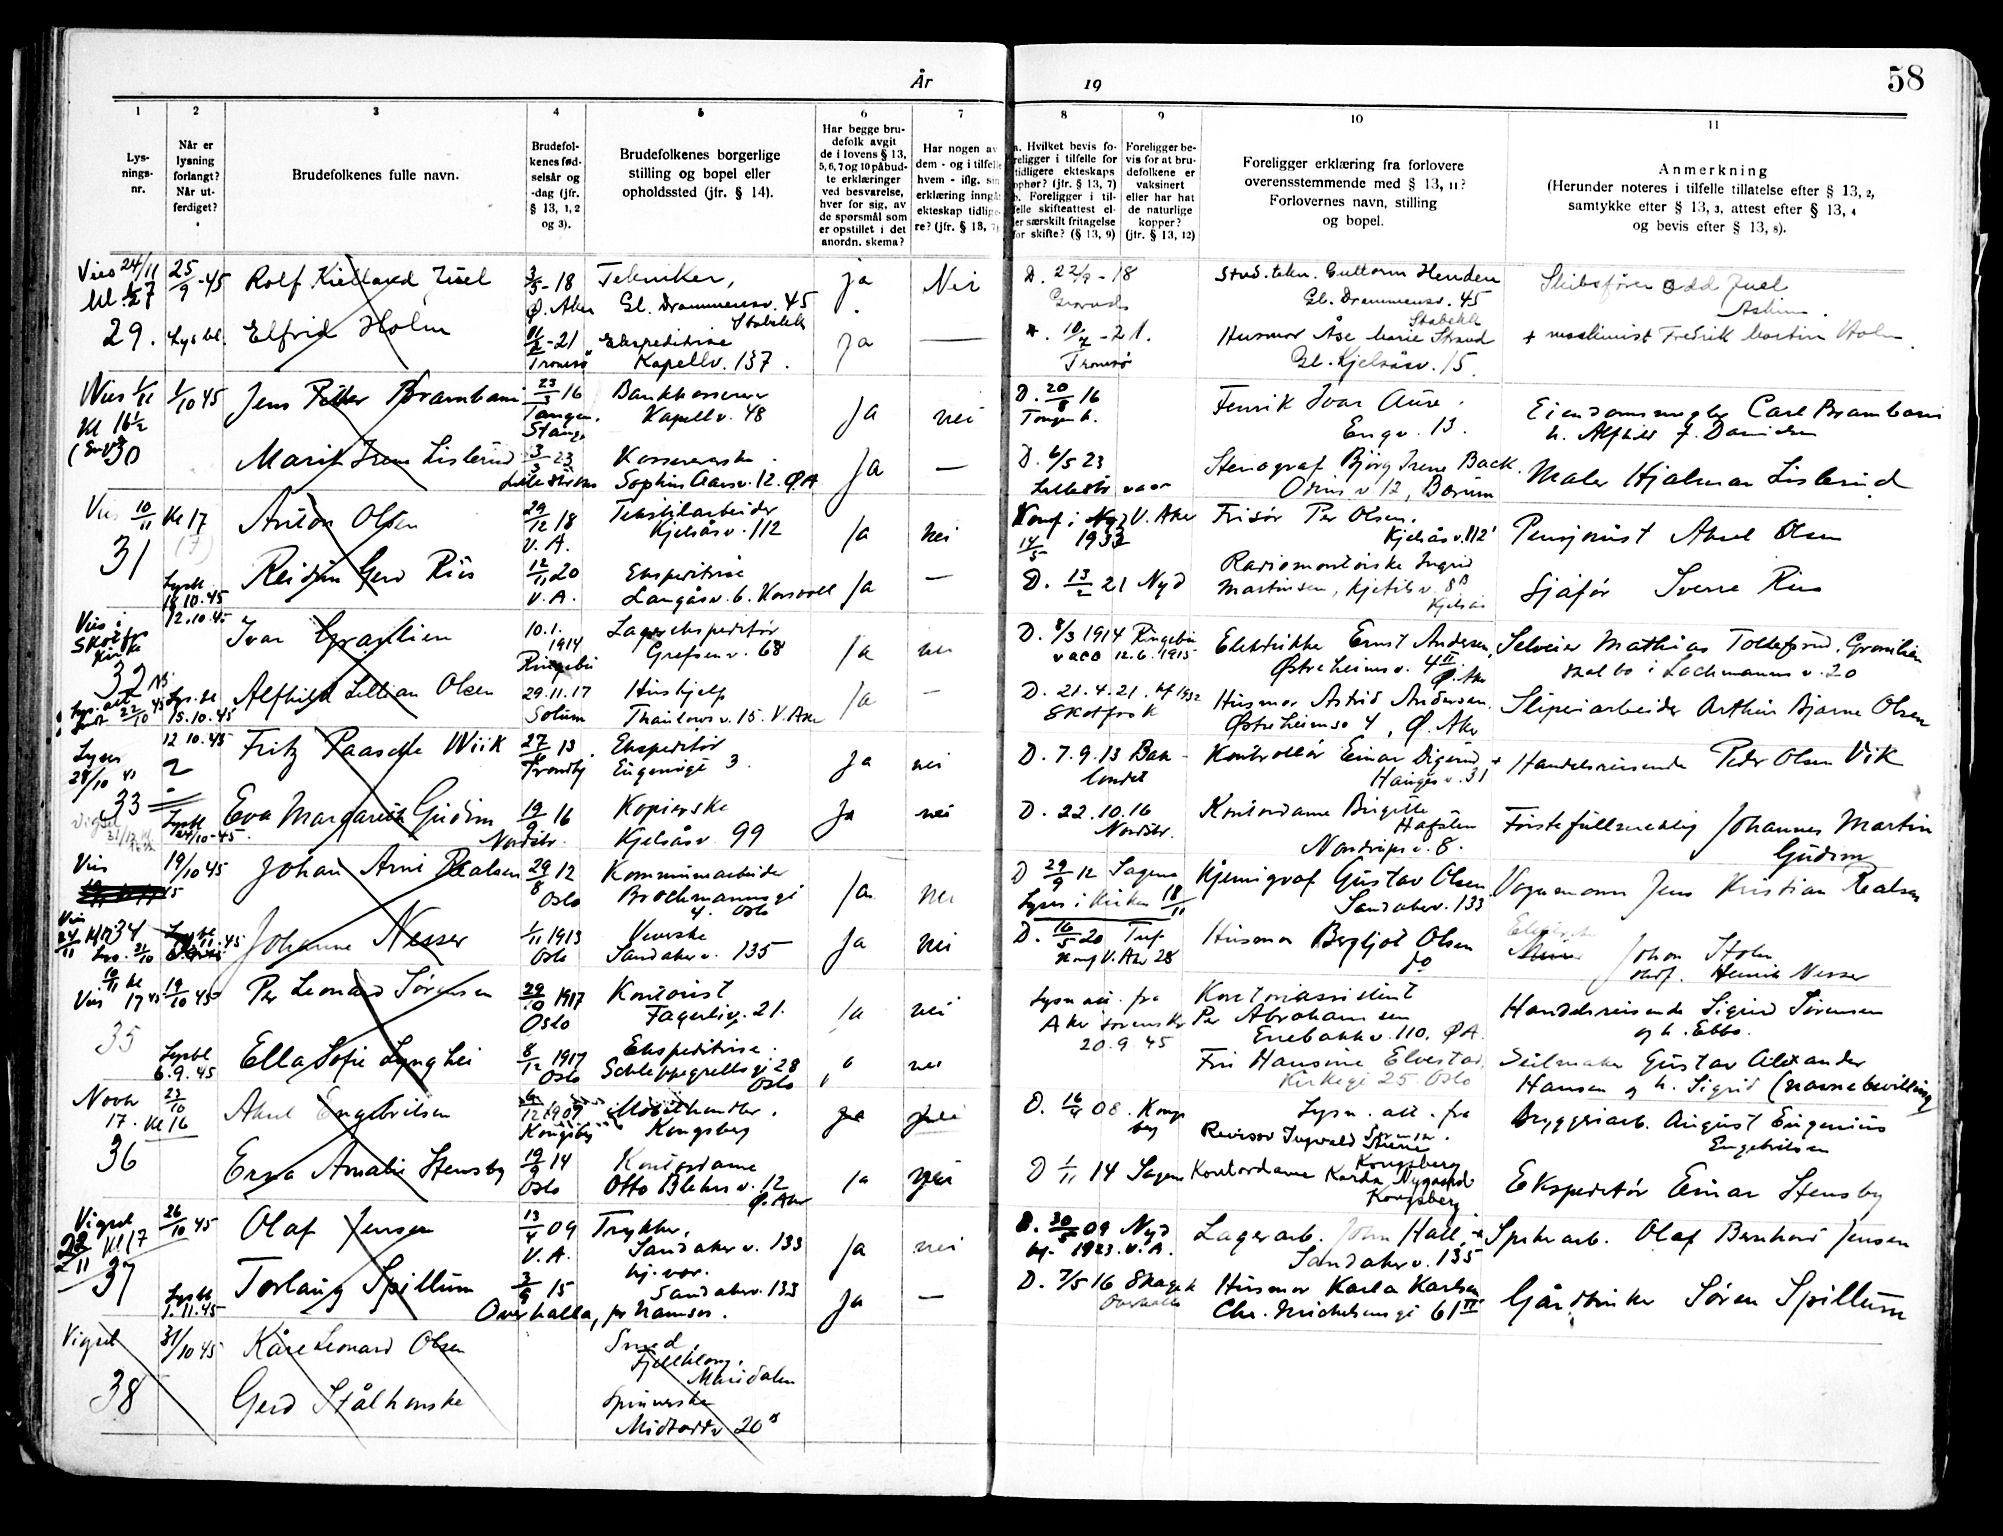 År 19
58
1
2
3
4
5
6
7
8
9
10
11
Lys-
nings-
nr.
Når er
lysning
forlangt?
Når ut-
ferdiget?
Brudefolkenes fulle navn.
Brudefol-
kenes fød-
selsår og
-dag (jfr.
§ 13, 1, 2
og 3).
Brudefolkenes borgerlige
stilling og bopel eller
opholdssted (jfr. § 14).
Har begge bru-
defolk avgit
de i lovens § 13,
5, 6, 7 og 10 påbud-
te erklæringer
ved besvarelse,
hver for sig, av
de spørsmål som
er opstillet i det
anordn. skema?
Har nogen av
dem - og i tilfelle
hvem - iflg. sin
erklæring inngå
ekteskap tidlige-
re? (jfr. § 13, 7)
a. Hvilket bevis fo-
religger i tilfelle for
tidligere ekteskaps
ophør? (jfr. § 13, 7)
b. Foreligger i til-
felle skifteattest el-
ler særskilt fritagelse
for skifte? (§ 13, 9)
Foreligger be-
vis for at bru-
defolkene er
vaksinert
eller har hat
de naturlige
kopper?
(jfr. § 13, 12)
Foreligger erklæring fra forlovere
overensstemmende med § 13, 11?
Forlovernes navn, stilling
og bopel.
Anmerkning
(Herunder noteres i tilfelle tillatelse efter § 13, 2,
samtykke efter § 13, 3, attest efter § 13, 4
og bevis efter § 13, 8).
Vies 24/11
29.
25/9-45
Lysbl.
Rolf Kielland Juel
3/5-18
Ø. Aker
Tekniker,
Gl. Drammensv. 45
Stabekk
ja
Nei
D. 22/9-18
Stud. tekn. Guttorm Henden
Gl. Drammensv. 45
Stabekk
Skibsfører Odd Juel
Askim.
Elfrid Holm
-21
Tromsø
Ekspeditrise
Kapellv. 137.
ja
—
10/7-21.
Tromsø
Husmor Åse Marie Strand
Gl. Kjelsåsv. 15.
+ maskinist Fredrik Martin Holm.
Vies
Kl 16½
30
1/10 45
Jens Petter Brambani
23/5 16
Tangen,
Stange
Bankkasserer
Kapellv. 48
Ja
nei
D. 20/8 16
Tangen k.
Fenrik Ivar Aure.
Engv. 13.
Eiendomsmegler Carl Brambani
h. Alfhild f. Danielsen
Marit Irene Lislerud
3/3 23
Lillestrøm
Kassererske.
Sophus Aarsv. 12. Ø A
Ja
—
D. 6/5 23
Lillestr. vacc
Stenograf Bjørg Irene Back.
Odins v 12, Bærum
Maler Hjalmar Lislerud
Vies 10/11 Kl 17
31
Anton Olsen
29/12 18
V. A.
Tekstilarbeider
Kjelsåsv. 112
Ja
nei
Konf i Nyd V. Aker
14/5 1933
Frisør Per Olsen.
Kjelsåsv. 112
Pensjonist Aksel Olsen
Lysbl.
18.10.45
Reidun Gerd Riis
12/11 20
V. A.
Ekspeditrise
Langåsv. 6. Korsvoll
Ja
—
D. 13/2 21 Nyd
Radiomontørske Ingrid
Martinsen, Kjetilsv. 8B
Kjelsås
Sjåfør Sverre Riis
Vies i
Skotfos
kirke
32
12.10.45
Ivar Granlien
10.1.
1914
Ringebu
Lagerekspeditør
Grefsenv. 68
Ja
nei
D. 8/3 1914 Ringebu
vacc 12.6.1915
Elektriker Ernst Andersen,
Østreheimsv. 4 II
Ø. Aker
Selveier Mathias Tollefsrud, Granlien
skal bo i Lachmanns v. 20
22/10 45
Lys. bl.
15.10.45
Alfhild Lillian Olsen
29.11.17
Solum
Hushjelp
Thaulows v. 15. V. Aker
Ja
—
D. 21.4.21. kf 1932
Skotfos k
Husmor Astrid Andersen.
Østreheimsv 4, Ø. Aker
Sliperiarbeider Arthur Bjarne Olsen
Lyses
28/10 45
33
12 10.45
Fritz Paasche Wiik
27/ 13
Trondhj
Ekspeditør
Eugeniesgt 3.
Ja
nei
D. 7.9.13 Bak-
landet
Kontrollør Einar Digerud
Haugesv. 31
Handelsreisende Peder Olsen Vik
Vigsel
Lysbl
24/10-45.
Eva Margareth Gudim
19/9 16
Nordstr.
Kopierske
Kjelsåsv. 99
Ja
nei
D. 22.10.16
Nordstr.
Kontordame Birgitte
Hafsten
Nordrupsv. 8.
Førstefullmektig Johannes Martin
Gudim
Vies
19/10 45
34
Johan Arni Realsen
29/8 12
Oslo
Kommunearbeider
Brochmannsgt
4. Oslo
Ja
nei
D 29/9 12 Sagene
Lyses i kirken 18/11
Kjemigraf Gustav Olsen
Sandakerv. 133
Vognmann Jens Kristian Realsen
Johanne Nesser
1/11 1913
Oslo
Veverske
Sandakerv. 135
Ja
nei
D. 16/5 20
konf V. Aker 28
Husmor Bergljot Olsen
do
Johan Stolen
Henrik Nesser
Vies
35
19/10 45
Per Leonard Sørensen
29/10 1917
Oslo
Kontorist
Fagerliv. 21.
Ja
nei
Lysn att. fra
Aker sorenskr
20.9 45
Kontorassistent
Per Abrahamsen
Enebakkv. 110, Ø A.
Handelsreisende Sigurd Sørensen
og h. Ebba.
Lysbl
6.9.45
Ella Sofie Lynghei
8/12 1917
Oslo
Ekspeditrise.
Schleppegrellsgt 28
Oslo
nei
Fru Hansine Elvestad
Kirkegt 25 Oslo
Seilmaker Gustav Alexander
Hansen og h. Sigrid (navnebevilling)
Novbr
17. Kl 16
36
23/10
Aksel Engebrilsen
/12 1909
Kongsberg
Møbelhandler.
Kongsberg
ja
D. 16/4 08. Kongs
berg
Lysn. att. fra
Revisor Ingvald
Kongsberg
Bryggeriarb. August Eugenius
Engebrilsen
Erna Amalie Stensby
19/9 14
Oslo
Kontordame
Otto Blehrs v. 12
Ø. Aker
Ja
nei
D 1/11 14 Sagene
Kontordame Karda Nygaard
Kongsberg
Ekspeditør Einar Stensby
Vigsel
Kl 17
37
26/10 45
Olaf Jensen
13/4 09
V. A.
Trykker,
Sandaker v. 133
Ja
nei
D. 30/5 09 Nyd
kf. 1923. V. A.
Lagerarb. John Hall,
Sandakerv. 135
Spikerarb. Olaf Bernhard Jensen
Lysbl
1.11.45
Torlaug Spillum
3/9 15
Overhalla, pr Namsos.
hj. vær.
Sandakerv. 133
Ja
—
D. 7/5 16 Skage k
Overhalla
Husmor Karla Karlsen
Chr. Michelsensgt 61 III
Gårdbruker Søren Spillum
Vigsel
38
31/10 45
Kåre Leonard Olsen
Smed,
Maridalen
Gerd Stålhanske
Spinnerske
Midtoddv 20B